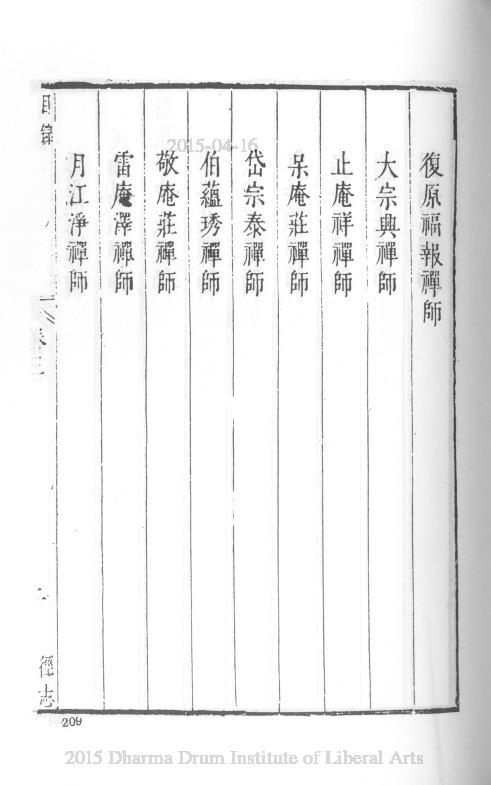 復原福報禪師
大宗興禪師
止庵祥禪師
呆庵莊禪師
岱宗泰禪師
伯蘊琇禪師
敬庵莊禪師
雷庵澤禪師
月江淨禪師
目錄
卷三
徑志
209
2015-04-16
2015 Dharma Drum Institute of Liberal Arts